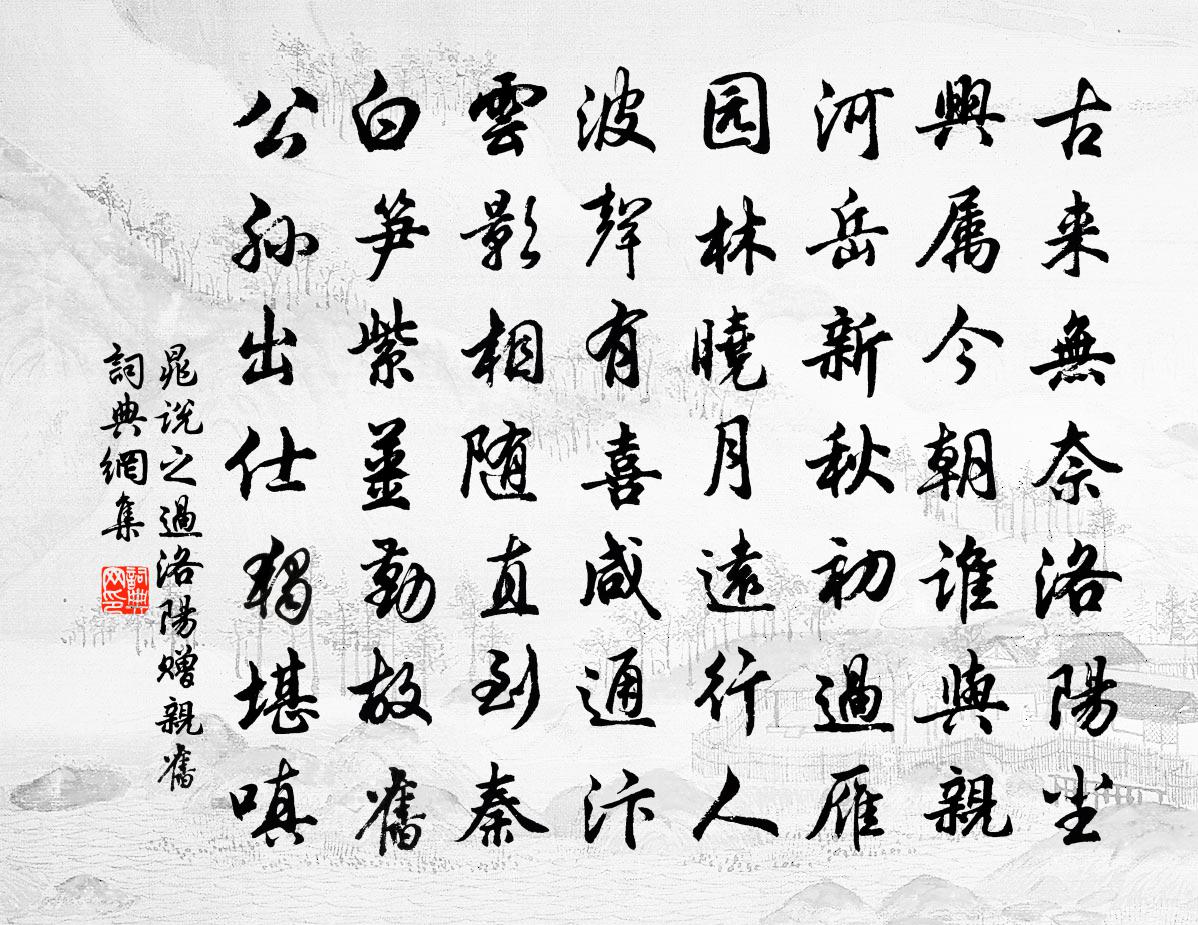 古来無奈洛陽尘
興属今朝谁與親
河岳新秋初過雁
园林曉月遠行人
波聲有喜咸通汴
雲影相随直到秦
白笋紫薑勤故舊
公孙出仕獨堪嗔
晁说之過洛陽贈親舊
詞典網集
詞典网印